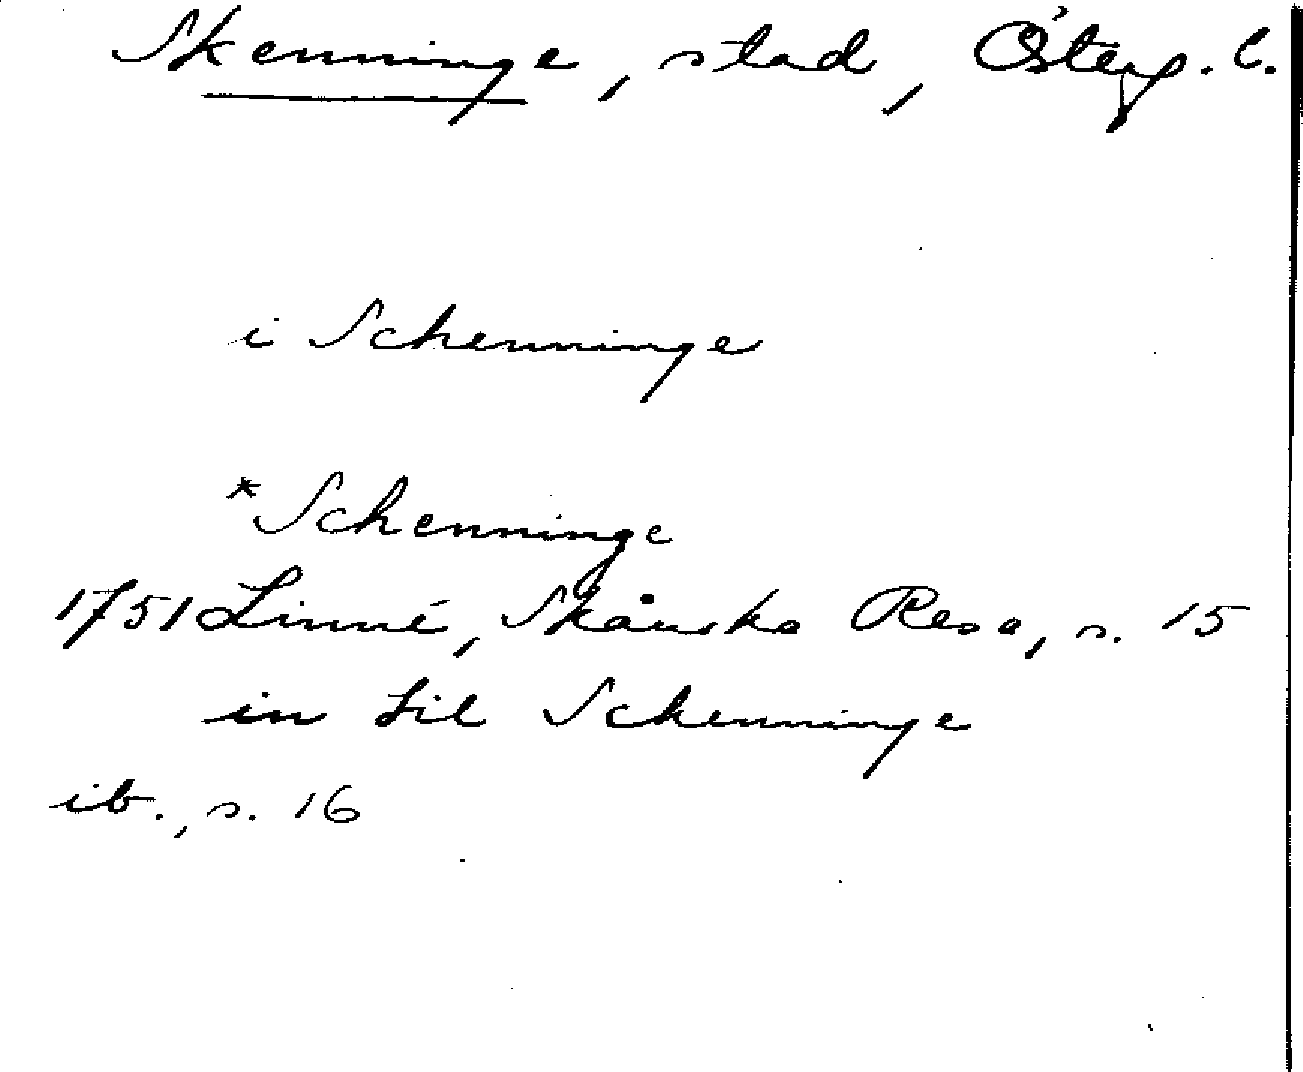 Skenninge, stad, Österg. l.
i Schenninge
*Schenninge
1751 Linné, Skånska Resa, s. 15
in til Schenninge
ib., s. 16